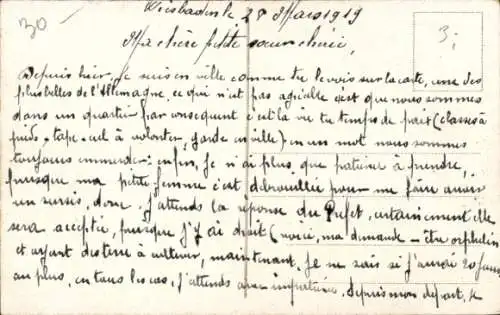 30
Wiesbaden le 28 Mars 1919
3;
Ma chère petite sœur chérie,
Depuis hier, je suis en ville comme tu le vois sur la carte, une des
plus belles de l'Allemagne, ce qui n'est pas agréable c'est que nous sommes
dans un quartier par conséquent c'est la vie du temps de paix (classes à
pieds - tape-cul à volonter, garde en ville) en un mot nous sommes
toujours emmerder: enfin, je n'ai plus que patience à prendre,
puisque ma petite femme c'est débrouillée pour me faire avoir
un sursis, donc j'attends la réponse du Préfet, certainement elle
sera acceptée, puisque j'y ai droit (voici, ma demande - être orphelin
et ayant des terre à cultiver, maintenant, je ne sais si j'aurai 20 jours
au plus, en tous les cas, j'attends avec impatience. Depuis mon départ, je